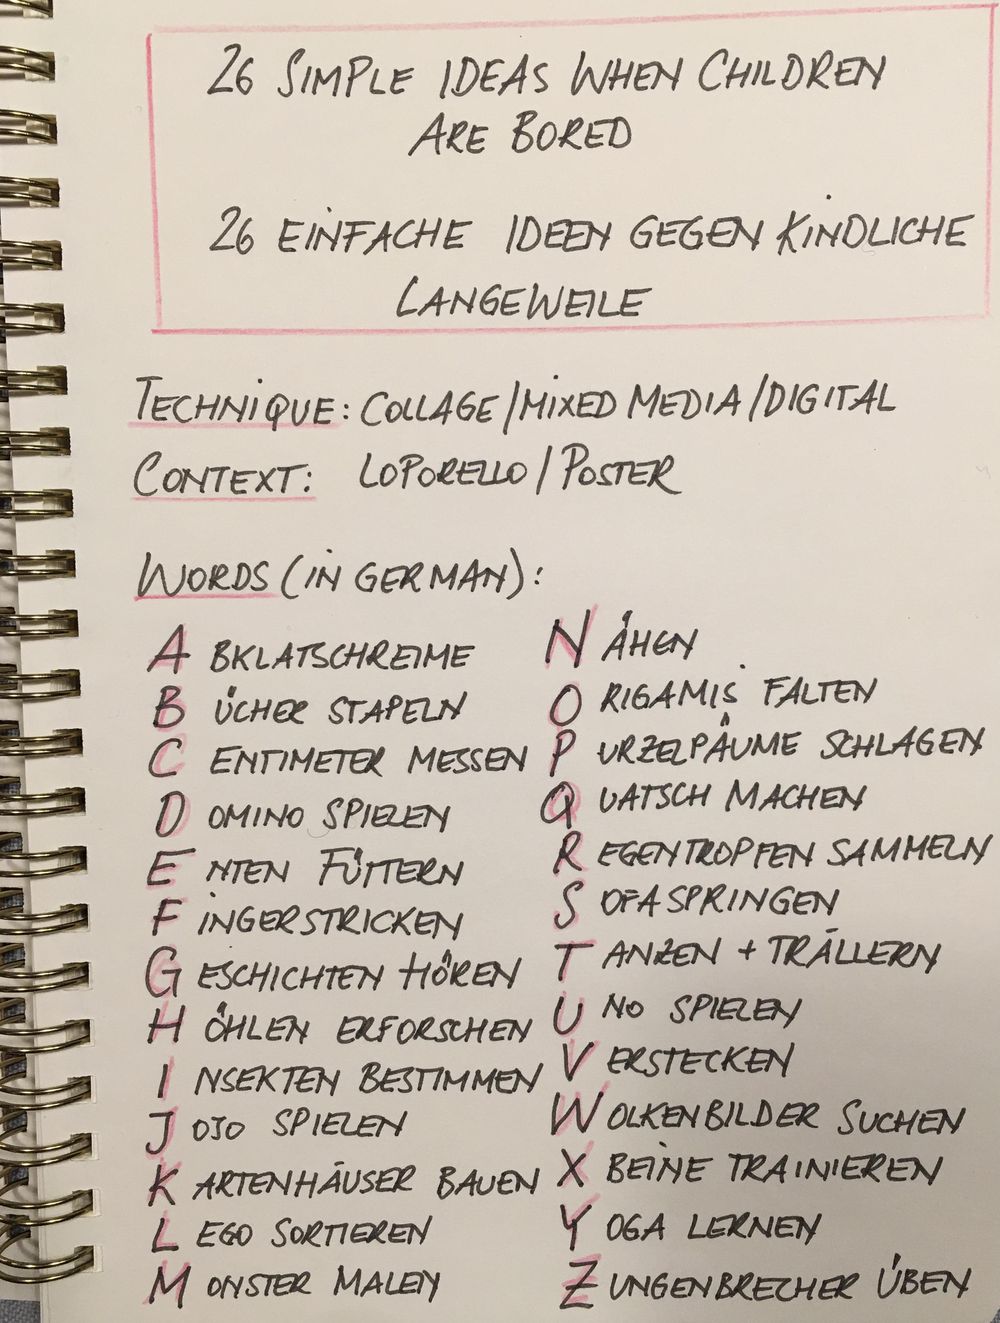 26 SIMPLE IDEAS WHEN CHILDREN
ARE BORED
26 EINFACHE IDEEN GEGEN KINDLICHE
LANGEWEILE
TECHNIQUE: COLLAGE/MIXED MEDIA/DIGITAL
CONTEXT: LOPORELLO/POSTER
WORDS (IN GERMAN):
ABKLATSCHREIME
BÜCHER STAPELN
CENTIMETER MESSEN
DOMINO SPIELEN
ENTEN FÜTTERN
FINGERSTRICKEN
GESCHICHTEN HÖREN
HÖHLEN ERFORSCHEN
INSEKTEN BESTIMMEN
JOJO SPIELEN
KARTENHÄUSER BAUEN
LEGO SORTIEREN
MONSTER MALEN
NÄHEN
ORIGAMIS FALTEN
PURZELPÄUME SCHLAGEN
QUATSCH MACHEN
REGENTROPFEN SAMMELN
SOFASPRINGEN
TANZEN + TRÄLLERN
UNO SPIELEN
VERSTECKEN
WOLKENBILDER SUCHEN
X BEINE TRAINIEREN
YOGA LERNEN
ZUNGENBRECHER ÜBEN